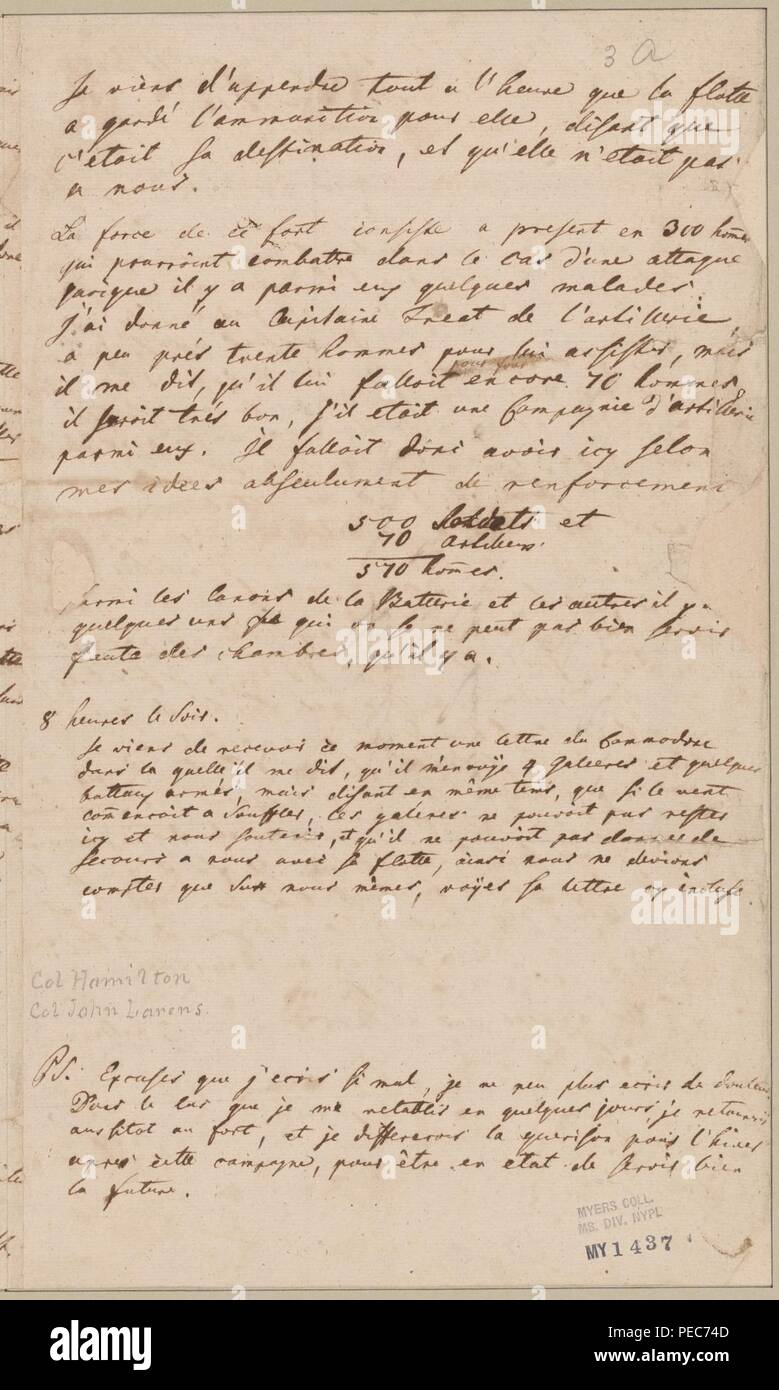 3 a
Je viens d'apprendre tout a l'heure que la flotte
a gardé l'ammunition pour elle, disant que
c'etait sa destination, et qu'elle n'etait pas
a nous.
La force de cè fort consiste a present en 300 hom̄es
qui pourroint combattre dans le cas d'une attaque
parçque il y a parmi eux quelques malades.
J'ai donné au Capitaine Treat de l'artillerie
a peu prés trente hommes pour lui assister, mais
il me dit, qu'il lui falloit encore 70 hommes
il seroit trés bon, s'il etait une Compagnie d'artillerie
parmi eux. Il falloit donc avoir icy selon
mes idées absoulument de renforcement
500 Soldats et
70 artilleurs.
570 hom̄es.
parmi les Canons de la Batterie et les autres il y a
quelques uns qui on se ne peut pas bien servir
faute des chambres, qu'il y a.
8 heures le Soir.
Je viens de recevoir cè moment une lettre du Commodore
dans la quelle il me dit, qu'il m'envoye 4 Galeères et quelques
battaux armés, mais disant en même tems, que si le vent
com̄encoit a Souffler, ces galeres ne pouvoit pas rester
icy et nous soutenir, et qu'il ne pouvoit pas donner de
Secours a nous avec sa flotte, ainsi nous ne devions
compter que Sur nous mêmes, voyes sa lettre cy incluse.
Col Hamilton
Col John Larens.
PS. Excuses que j'ecris si mal, je ne peu plus ecrir de douleur
Dans le cas que je me retablis en quelques jours je retournerois
aussitot au fort, et je differerois la guerison pour l'hiver
apres cètte campagne, pour être en etat de servir bien
la future.
MYERS COLL.
MS. DIV. NYPL
MY 1437
a
alamy
alamy
Image ID: PEC74D
www.alamy.com